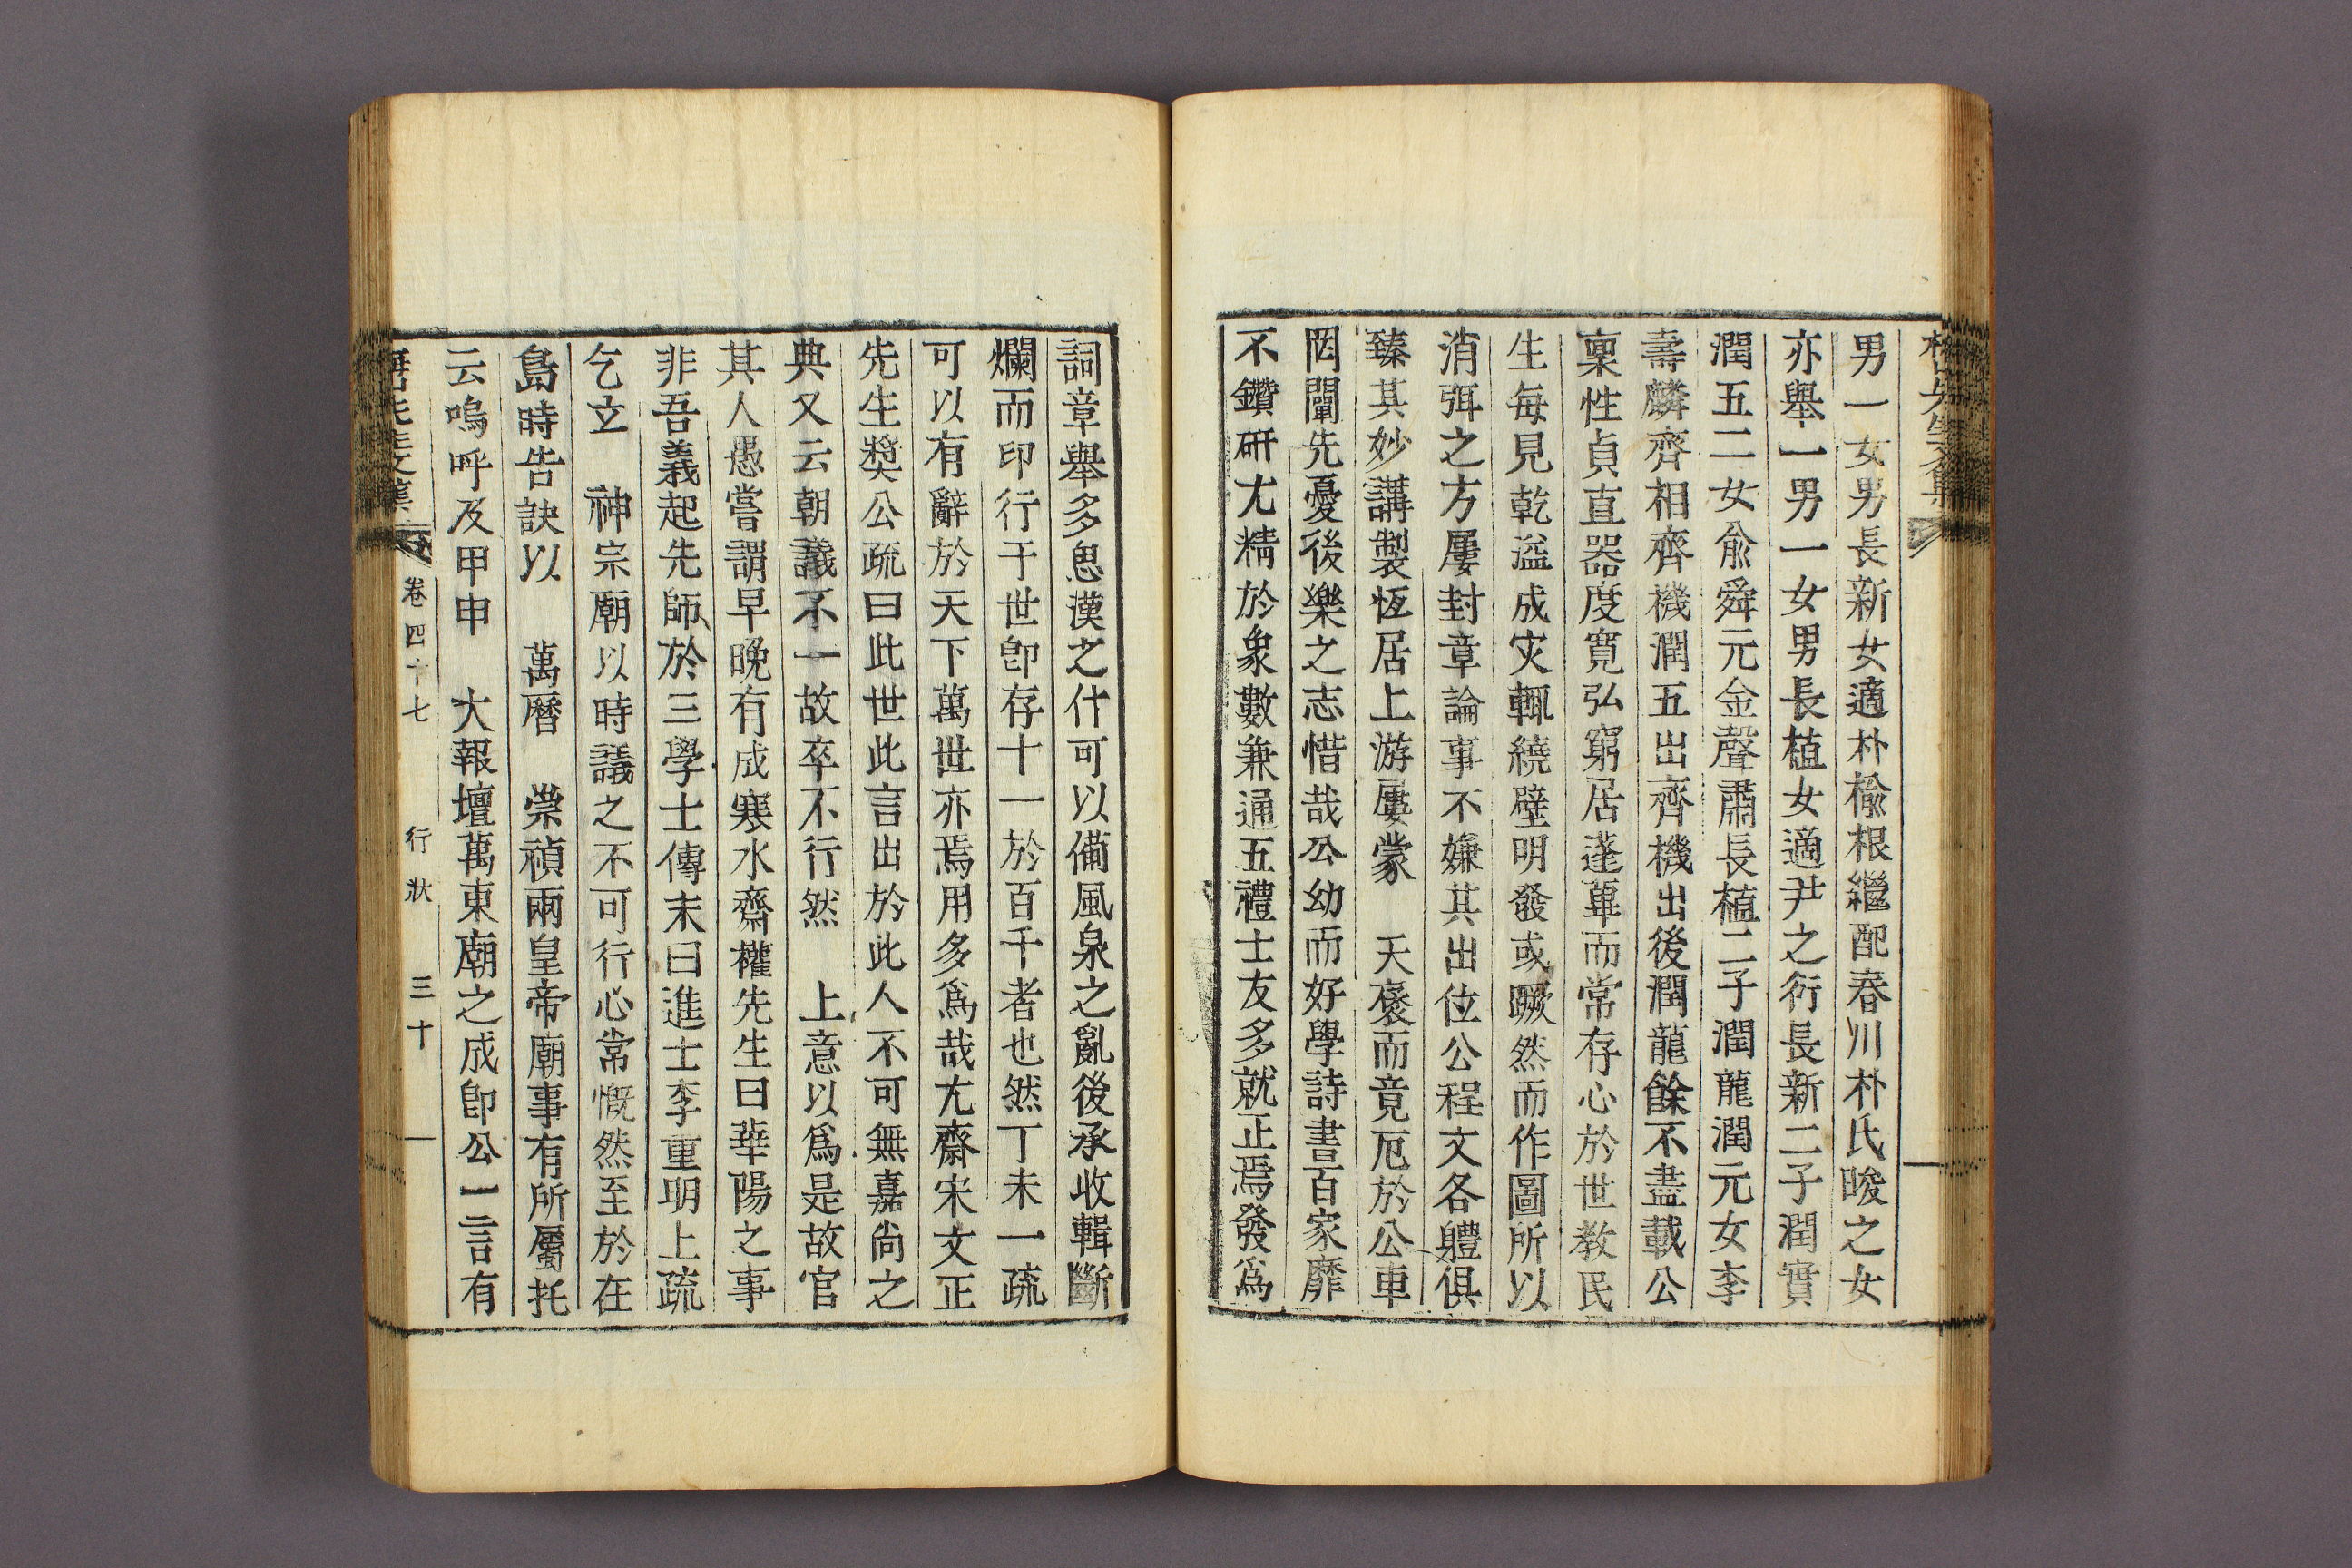 男一女男長新女適朴楡根繼配春川朴氏晙之女
亦舉一男一女男長植女適尹之衍長新二子潤實
潤五二女兪舜元金聲肅長植二子潤龍潤元女李
壽麟齊相齊機潤五出齊機出後潤龍餘不盡載公
稟性貞直器度寬弘窮居蓬蓽而常存心於世教民
生每見乾溢成灾輒繞壁明發或噘然而作圖所以
消弭之方屢封章論事不嫌其出位公程文各軆俱
臻其妙講製恆居上游屢蒙 天褒而竟厄於公車
罔闡先憂後樂之志惜哉公幼而好學詩書百家靡
不鑽硏尤精於象數兼通五禮士友多就正焉發爲
詞章舉多思漢之什可以備風泉之亂後承收輯斷
爛而印行于世卽存十一於百千者也然丁未一疏
可以有辭於天下萬世亦焉用多爲哉尤齋宋文正
先生奬公疏曰此世此言出於此人不可無嘉尙之
典又云朝議不一故卒不行然 上意以爲是故官
其人愚嘗謂早晩有成寒水齋權先生曰華陽之事
非吾義起先師於三學士傳末曰進士李重明上疏
乞立 神宗廟以時議之不可行心常慨然至於在
島時告訣以 萬曆 崇禎兩皇帝廟事有所屬托
云嗚呼及甲申 大報壇萬東廟之成卽公一言有
卷四十七 行狀 三十